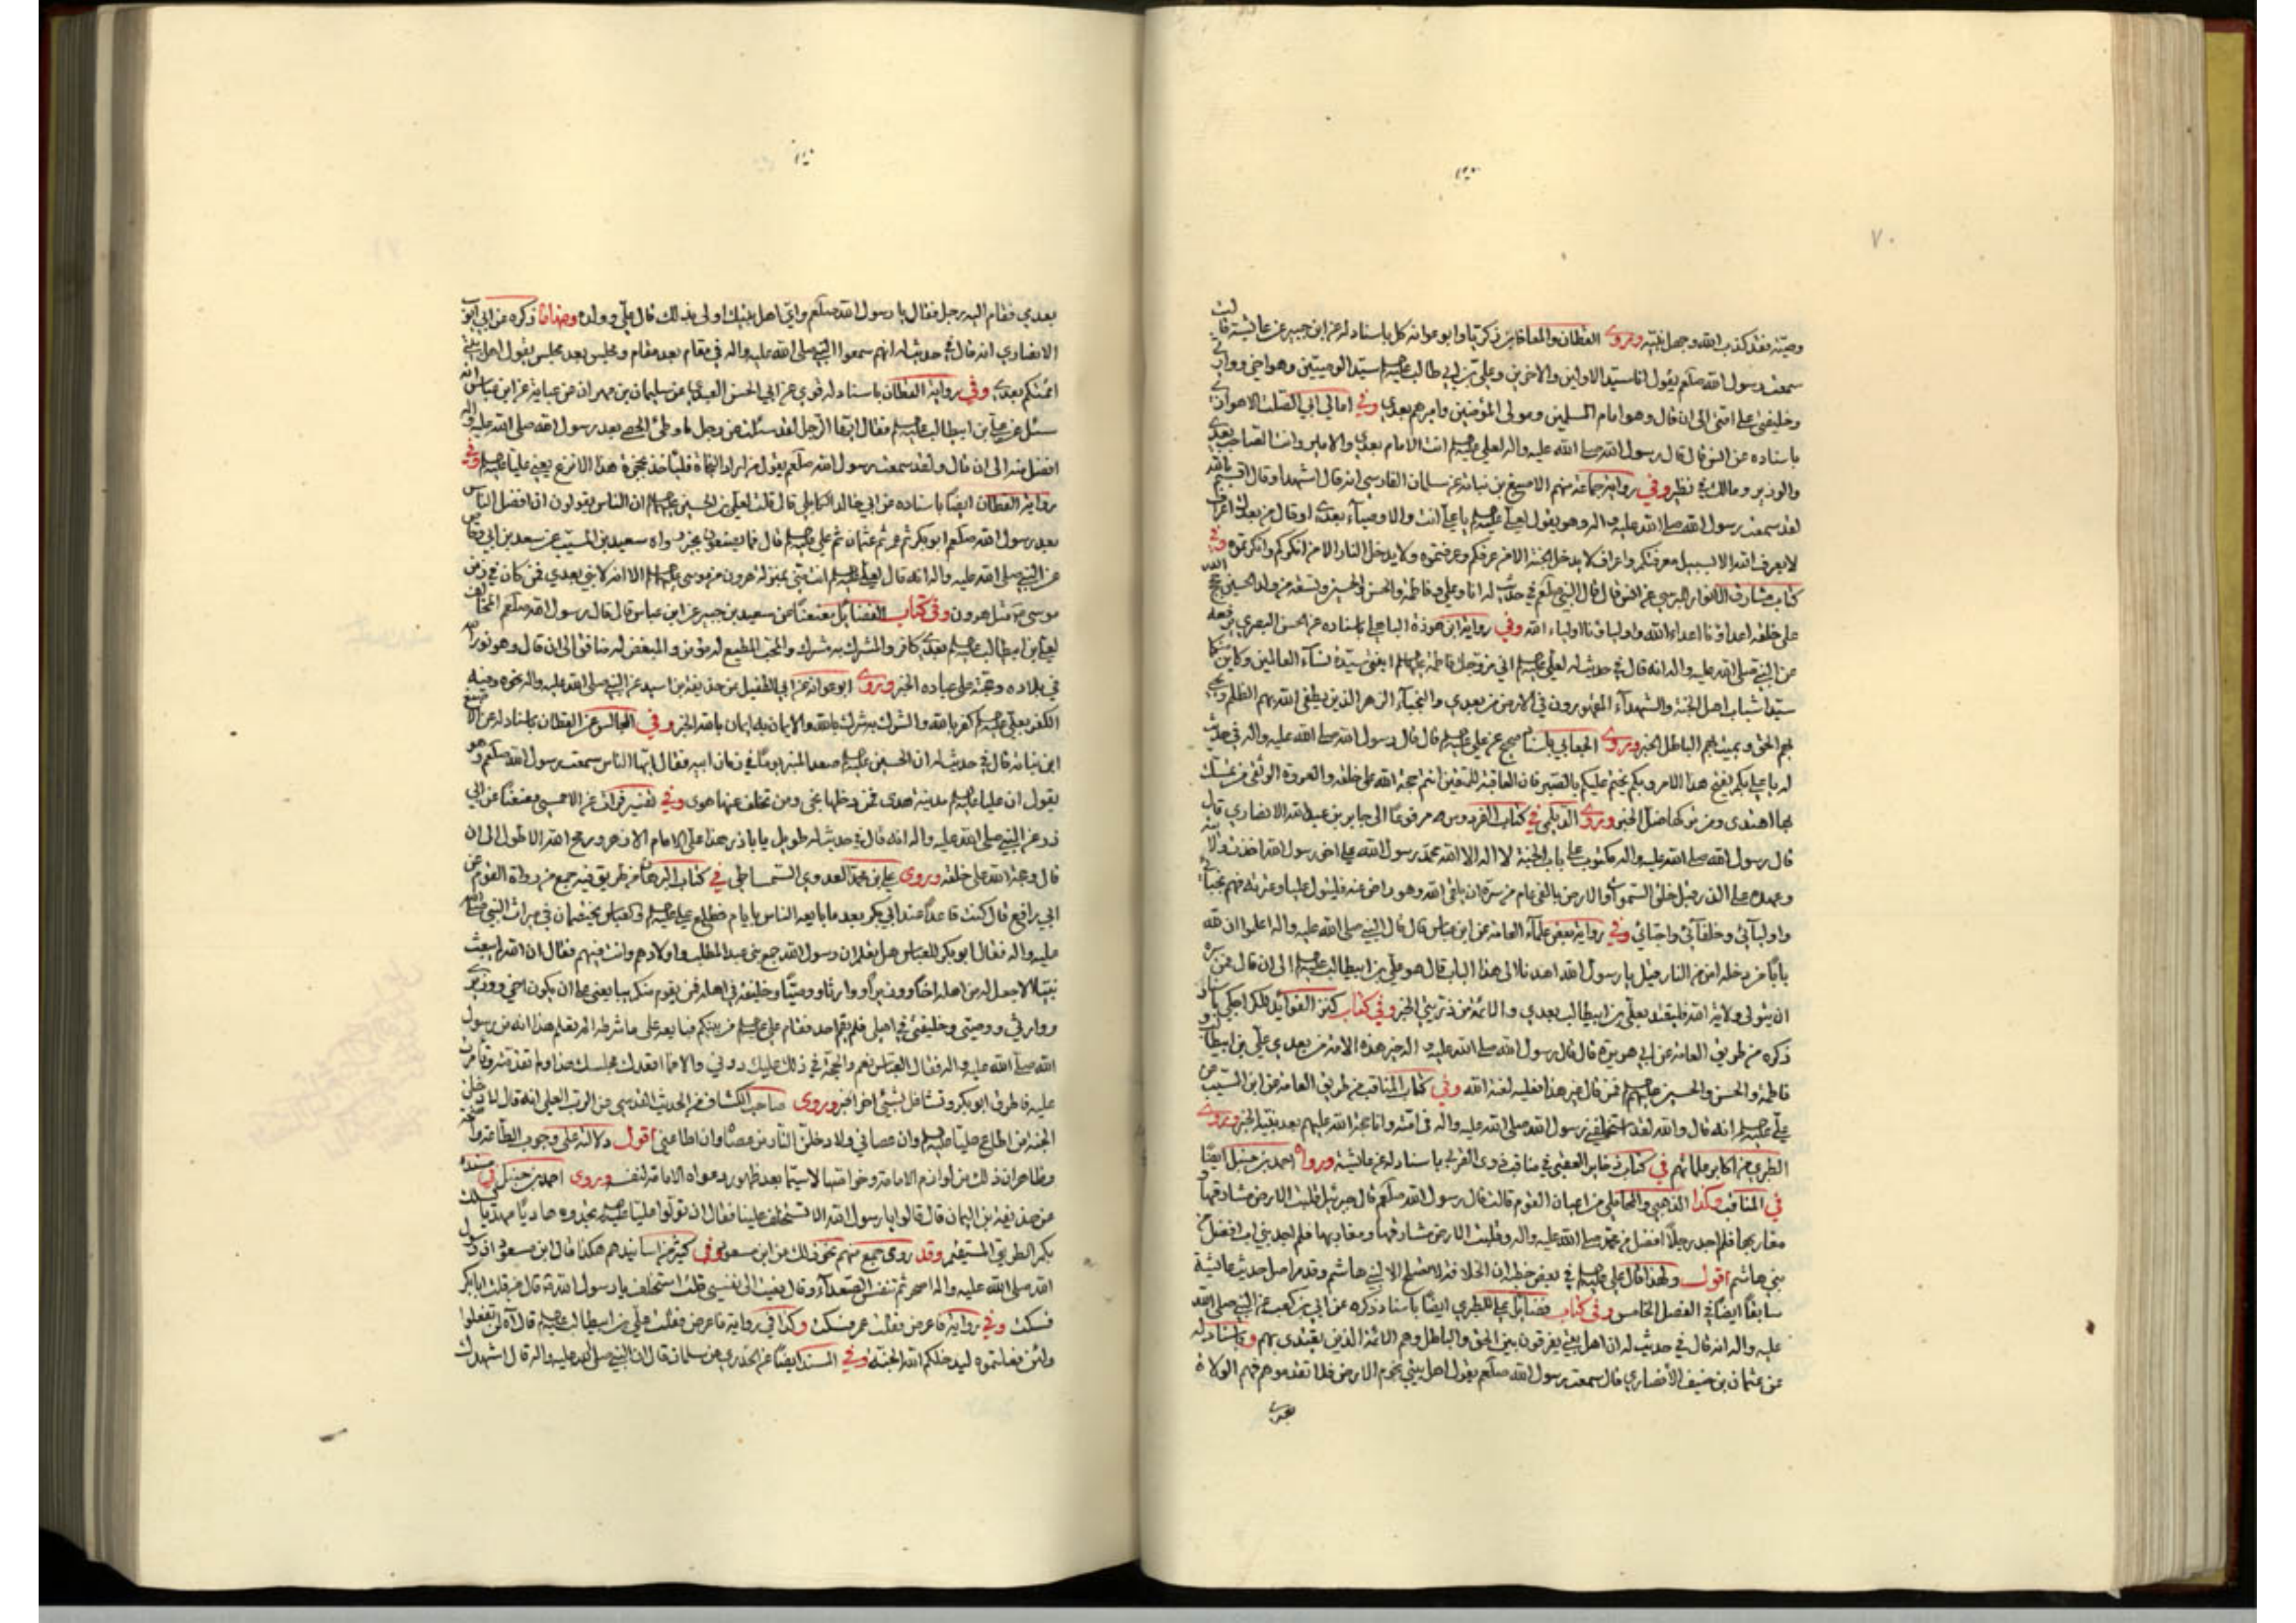 ٧٠
وصيته فقد كذب الله وجهل نبيه وروى القطان والمعافا بن زكريا وابو عوانه كل باسناد له عن ابن جبير عن عايشة قالت
سمعت رسول الله صلعم يقول انا سيد الاولين والاخرين وعلي بن ابي طالب سيد الوصيين وهو اخي ووارثي
وخليفتي على امتي الى ان قال وهو امام المسلمين ومولى المؤمنين واميرهم بعدي وفي امالي ابي الصلت الاهوازي
باسناده عن انس قال قال رسول الله صلى الله عليه واله لعلي انت الامام بعدي والامير وانت الصاحب بعدي
والوزير ومالك في نظير وفي رواية جماعة منهم الاصبغ بن نباته عن سلمان الفارسي انه قال اشهد وقال اقسم بالله
لقد سمعت رسول الله صلى الله عليه واله وهو يقول لعلي يا علي انت والاوصياء بعدي او قال من بعدك اعراف
لا يعرف الله الا بسبيل معرفتكم واعراف لا يدخل الجنة الا من عرفكم وعرفتموه ولا يدخل النار الا من انكركم وانكرتموه وفي
كتاب مشارق الانوار للبرسي عن انس قال قال النبي صلعم في حديث له انا وعلي وفاطمة والحسن والحسين وتسعة من ولد الحسين حجج الله
على خلقه اعداؤنا اعداء الله واولياؤنا اولياء الله وفي رواية ابن هوذة الباهلي باسناده عن الحسن البصري رفعه
عن النبي صلى الله عليه واله انه قال في حديث له لعلي اني مزوجك فاطمة ابنتي سيدة نساء العالمين وكاين منكما
سيدا شباب اهل الجنة والشهداء المقهورون في الارض من بعدي والنجباء الزهر الذين يطفي الله بهم الظلم ويحيي
بهم الحق ويميت بهم الباطل الخبر وروى الجعابي باسناد صحيح عن علي قال قال رسول الله صلى الله عليه واله في حديث
له يا علي بكم يفتح هذا الامر وبكم يختم عليكم بالصبر فان العاقبة للمتقين انتم حجة الله على خلقه والعروة الوثقى من تمسك
بها اهتدى ومن تركها ضل الخبر وروى الديلمي في كتاب الفردوس مرفوعا الى جابر بن عبد الله الانصاري قال
قال رسول الله صلى الله عليه واله مكتوب على باب الجنة لا اله الا الله محمد رسول الله علي اخي رسول الله اخذت ولايته
وعهده على الذر قبل خلق السموات والارض بالفي عام من سره ان يلقى الله وهو راض عنه فليتول عليا وعترته فهم نجبائي
واوليائي وخلفائي واحبائي وفي رواية بعض علماء العامة عن ابن عباس قال قال النبي صلى الله عليه واله اعلموا ان لله
بابا من دخله امن من النار قيل يا رسول الله اهدنا الى هذا الباب قال هو علي بن ابيطالب الى ان قال فمن سره
ان يتولى ولاية الله فليقتد بعلي بن ابيطالب بعدي والائمة من ذريتي الخبر وفي كتاب كنز الفوائد للكراجكي باسناد
ذكره من طريق العامة عن ابي هريرة قال قال رسول الله صلى الله عليه واله خير هذه الامة من بعدي علي بن ابيطالب و
فاطمة والحسن والحسين فمن قال غير هذا فعليه لعنة الله وفي كتاب المناقب من طريق العامة عن ابن المسيب عن
علي انه قال والله لقد استخلفني رسول الله صلى الله عليه واله في امته وانا حجة الله عليهم بعد نبيه الخبر وروى
الطبري من اكابر علمائهم في كتاب ذخاير العقبى في مناقب ذوي القربى باسناد له عن عائشة ورواه احمد بن حنبل ايضا
في المناقب وكذا الذهبي والمحاملي من اعيان القوم قالت قال رسول الله صلعم قال جبرئيل قلبت الارض مشارقها و
مغاربها فلم اجد رجلا افضل من محمد صلى الله عليه واله وقلبت الارض مشارقها ومغاربها فلم اجد بني اب افضل من
بني هاشم اقول ولهذا قال علي في بعض خطبه ان الخلافة لا تصلح الا لبني هاشم وقد مر اصل حديث عائشة
سابقا ايضا في الفصل الخامس وفي كتاب فضائل علي للطبري ايضا باسناد ذكره عن ابي بن كعب عن النبي صلى الله
عليه واله انه قال في حديث له ان اهل بيتي يفرقون بين الحق والباطل وهم الائمة الذين يقتدى بهم وباسناد له
عن عثمان بن حنيف الانصاري قال سمعت رسول الله صلعم يقول اهل بيتي نجوم الارض فلا تقدموهم فهم الولاة
بعدي
بعدي فقام اليه رجل فقال يا رسول الله صلعم واي اهل بيتك اولى بذلك قال علي وولده وهذا ما ذكره عن ابي ايوب
الانصاري انه قال في حديث له انهم سمعوا النبي صلى الله عليه واله في مقام بعد مقام ومجلس بعد مجلس يقول اهل بيتي
ائمتكم بعدي وفي رواية القطان باسناد له قوي عن ابي الحسن العبدي عن سليمان بن مهران عن عباية عن ابن عباس انه
سئل عن علي بن ابيطالب فقال ايها الرجل لقد سئلت عن رجل ما وطئ الحصى بعد رسول الله صلى الله عليه واله
افضل منه الى ان قال ولقد سمعت رسول الله صلعم يقول من اراد النجاة فلياخذ بحجزة هذا الانزع يعني عليا وفي
رواية القطان ايضا باسناده عن ابي خالد الكابلي قال قلت لعلي بن الحسين ان الناس يقولون ان افضل الناس
بعد رسول الله صلعم ابو بكر ثم عمر ثم عثمان ثم علي قال فما يصنعون بخبر رواه سعيد بن المسيب عن سعد بن ابي وقاص
عن النبي صلى الله عليه واله انه قال لعلي انت مني بمنزلة هرون من موسى الا انه لا نبي بعدي فمن كان في زمن
موسى مثل هرون وفي كتاب الفضائل معنعنا عن سعيد بن جبير عن ابن عباس قال قال رسول الله صلعم المخالف
لعلي بن ابيطالب بعدي كافر والمشرك به مشرك والمحب المطيع له مؤمن والمبغض له منافق الى ان قال وهو نور الله
في بلاده وحجته على عباده الخبر وروى ابو عوانة عن ابي الطفيل عن حذيفة بن اسيد عن النبي صلى الله عليه واله نحوه وفيه
الكفر بعلي كفر بالله والشرك به شرك بالله والايمان به ايمان بالله الخبر وفي المجالس عن القطان باسناد له عن الاصبغ
ابن نباته قال في حديث له ان الحسين صعد المنبر يوما في زمان ابيه فقال ايها الناس سمعت رسول الله صلعم وهو
يقول ان عليا مدينة هدى فمن دخلها نجى ومن تخلف عنها هوى وفي تفسير فرات عن الاحمسي معنعنا عن ابي
ذر عن النبي صلى الله عليه واله انه قال في حديث له طويل يا باذر هذا علي الامام الازهر ورمح الله الاطول الى ان
قال وحجة الله على خلقه وروى علي بن محمد العدوي الشمشاطي في كتاب البرهان من طريق فيه جمع من رواة القوم عن
ابي رافع قال كنت قاعدا عند ابي بكر بعد ما بايعه الناس بايام فطلع علي والعباس يختصمان في ميراث النبي صلى الله
عليه واله فقال ابو بكر للعباس هل تعلم ان رسول الله جمع بني عبد المطلب واولادهم وانت فيهم فقال ان الله لم يبعث
نبيا الا جعل له من اهله اخا ووزيرا ووارثا ووصيا وخليفة في اهله فمن يقوم منكم يبايعني على ان يكون اخي ووزيري
ووارثي ووصيي وخليفتي في اهلي فلم يقم احد فقام علي من بينكم فبايعه على ما شرطه له تعلم هذا انه من رسول
الله صلى الله عليه واله فقال العباس نعم والحجة في ذلك عليك دوني والا فما اقعدك مجلسك هذا ولم تقدمته وتأمرت
عليه فاطرق ابو بكر وتشاغل بشيئ اخر الخبر وروى صاحب الكشاف في الحديث القدسي عن الرب العلي انه قال لادخلن
الجنة من اطاع عليا وان عصاني ولادخلن النار من عصاه وان اطاعني اقول دلالته على وجوب الطاعة واضحة
وظاهر ان ذلك من لوازم الامامة وخواصها لا سيما بعد ظهور دعواه الامامة لنفسه وروى احمد بن حنبل في مسنده
عن حذيفة ابن اليمان قال قالوا يا رسول الله الا تستخلف علينا فقال ان تولوا عليا تجدوه هاديا مهديا يسلك
بكم الطريق المستقيم وقد روى جمع منهم نحو ذلك عن ابن مسعود وفي كثير من اسانيدهم هكذا قال ابن مسعود ان رسول
الله صلى الله عليه واله اصحر ثم تنفس الصعداء وقال نعيت الى نفسي قلت استخلف يا رسول الله قال من قلت ابا بكر
فسكت وفي رواية فاعرض فقلت عمر فسكت وكذا في رواية فاعرض فقلت علي بن ابيطالب قال اه لن تفعلوا
ولئن فعلتموه ليدخلكم الله الجنة وفي المسند ايضا عن الخدري عن سلمان قال ان النبي صلى الله عليه واله قال اشهدك